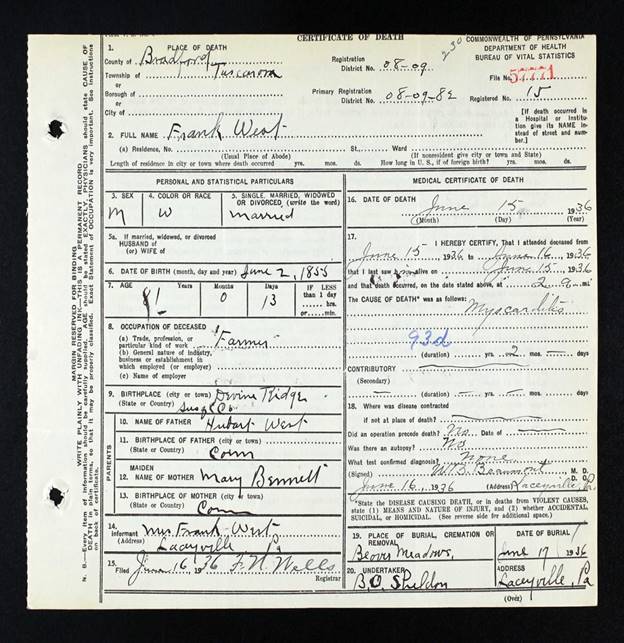 CERTIFICATE OF DEATH
COMMONWEALTH OF PENNSYLVANIA
DEPARTMENT OF HEALTH
BUREAU OF VITAL STATISTICS
230
File No. 57771
Registered No. 15
[If death occurred in a Hospital or Institution give its NAME instead of street and number.]
1. PLACE OF DEATH
County of Bradford
Township of Tuscarora
or
Borough of
or
City of
Registration District No. 08-09
Primary Registration District No. 08-09-82
2. FULL NAME Frank West
(a) Residence, No. St. Ward
(Usual Place of Abode) (If nonresident give city or town and State)
Length of residence in city or town where death occurred yrs. mos. ds. How long in U. S., if of foreign birth? yrs. mos. ds.
PERSONAL AND STATISTICAL PARTICULARS
3. SEX M
4. COLOR OR RACE W
5. SINGLE, MARRIED, WIDOWED OR DIVORCED (write the word) married
5a. If married, widowed, or divorced
HUSBAND of
(or) WIFE of
6. DATE OF BIRTH (month, day and year) June 2, 1855
7. AGE 81 Years 0 Months 13 Days
IF LESS than 1 day hrs. or min.
8. OCCUPATION OF DECEASED
(a) Trade, profession, or particular kind of work Farmer
(b) General nature of industry, business or establishment in which employed (or employer)
(c) Name of employer
9. BIRTHPLACE (city or town) Devine Ridge
(State or Country) Susq Co
PARENTS
10. NAME OF FATHER Hubart West
11. BIRTHPLACE OF FATHER (city or town)
(State or Country) Conn
12. MAIDEN NAME OF MOTHER Mary Bennett
13. BIRTHPLACE OF MOTHER (city or town)
(State or Country) Conn
14. Informant Mrs. Frank West
(Address) Laceyville Pa
15. Filed June 16 1936 F. N. Wells
Registrar
MEDICAL CERTIFICATE OF DEATH
16. DATE OF DEATH June 15 1936
(Month) (Day) (Year)
17. I HEREBY CERTIFY, That I attended deceased from
June 15 1936 to June 16, 1936
that I last saw alive on June 15 1936
and that death occurred, on the date stated above, at 2 a. m.
The CAUSE OF DEATH* was as follows:
Myocarditis
93d
(duration) yrs. 2 mos. ds.
CONTRIBUTORY
(Secondary)
(duration) yrs. mos. ds.
18. Where was disease contracted
if not at place of death?
Did an operation precede death? No Date of
Was there an autopsy? No
What test confirmed diagnosis? none
(Signed) Beaumont M. D.
D. O.
June 16 1936 (Address) Laceyville, Pa.
*STATE the DISEASE CAUSING DEATH, or in deaths from VIOLENT CAUSES, state (1) MEANS and NATURE OF INJURY, and (2) whether ACCIDENTAL, SUICIDAL, or HOMICIDAL. (See reverse side for additional space).
19. PLACE OF BURIAL, CREMATION OR REMOVAL
Beaver Meadows,
DATE OF BURIAL
June 17 1936
20. UNDERTAKER
B. O. Sheldon
ADDRESS
Laceyville, Pa
(Over)
MARGIN RESERVED FOR BINDING
WRITE PLAINLY WITH UNFADING INK—THIS IS A PERMANENT RECORD
N. B.—Every item of information should be carefully supplied. AGE should be stated EXACTLY. PHYSICIANS should state CAUSE OF DEATH in plain terms, so that it may be properly classified. Exact Statement of OCCUPATION is very important. See instructions on back of certificate.